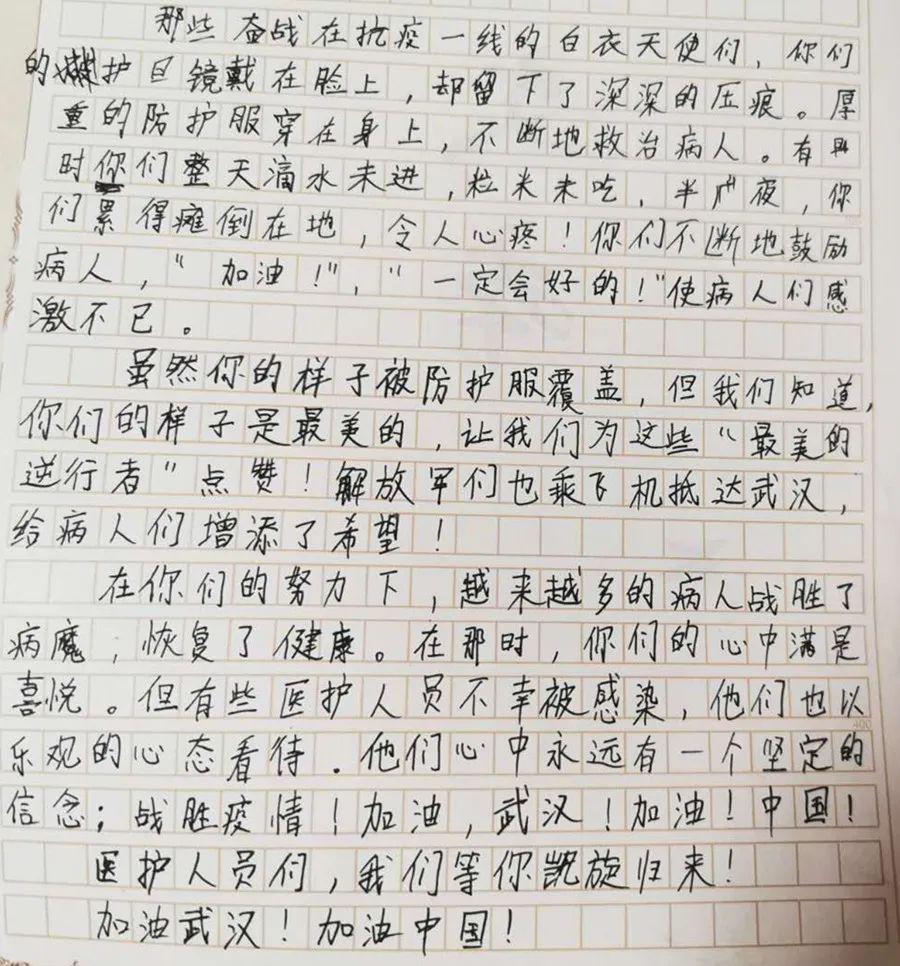 那些奋战在抗疫一线的白衣天使们，你们
的护目镜戴在脸上，却留下了深深的压痕。厚
重的防护服穿在身上，不断地救治病人。有
时你们整天滴水未进，粒米未吃，半夜，你
们累得瘫倒在地，令人心疼！你们不断地鼓励
病人，“加油！”，“一定会好的！”使病人们感
激不已。
虽然你的样子被防护服覆盖，但我们知道，
你们的样子是最美的，让我们为这些“最美的
逆行者”点赞！解放军们也乘飞机抵达武汉，
给病人们增添了希望！
在你们的努力下，越来越多的病人战胜了
病魔，恢复了健康。在那时，你们的心中满是
喜悦。但有些医护人员不幸被感染，他们也以
400
乐观的心态看待．他们心中永远有一个坚定的
信念；战胜疫情！加油，武汉！加油！中国！
医护人员们，我们等你凯旋归来！
加油武汉！加油中国！